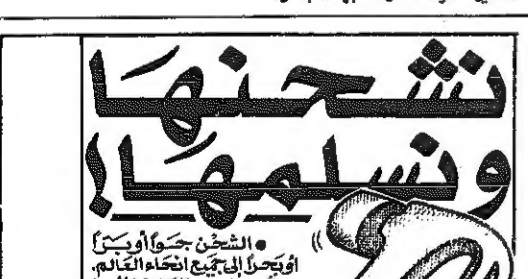 نشحنها
ونسلمها!
• الشحن جواً أو براً
أو بحراً إلى جميع انحاء العالم.